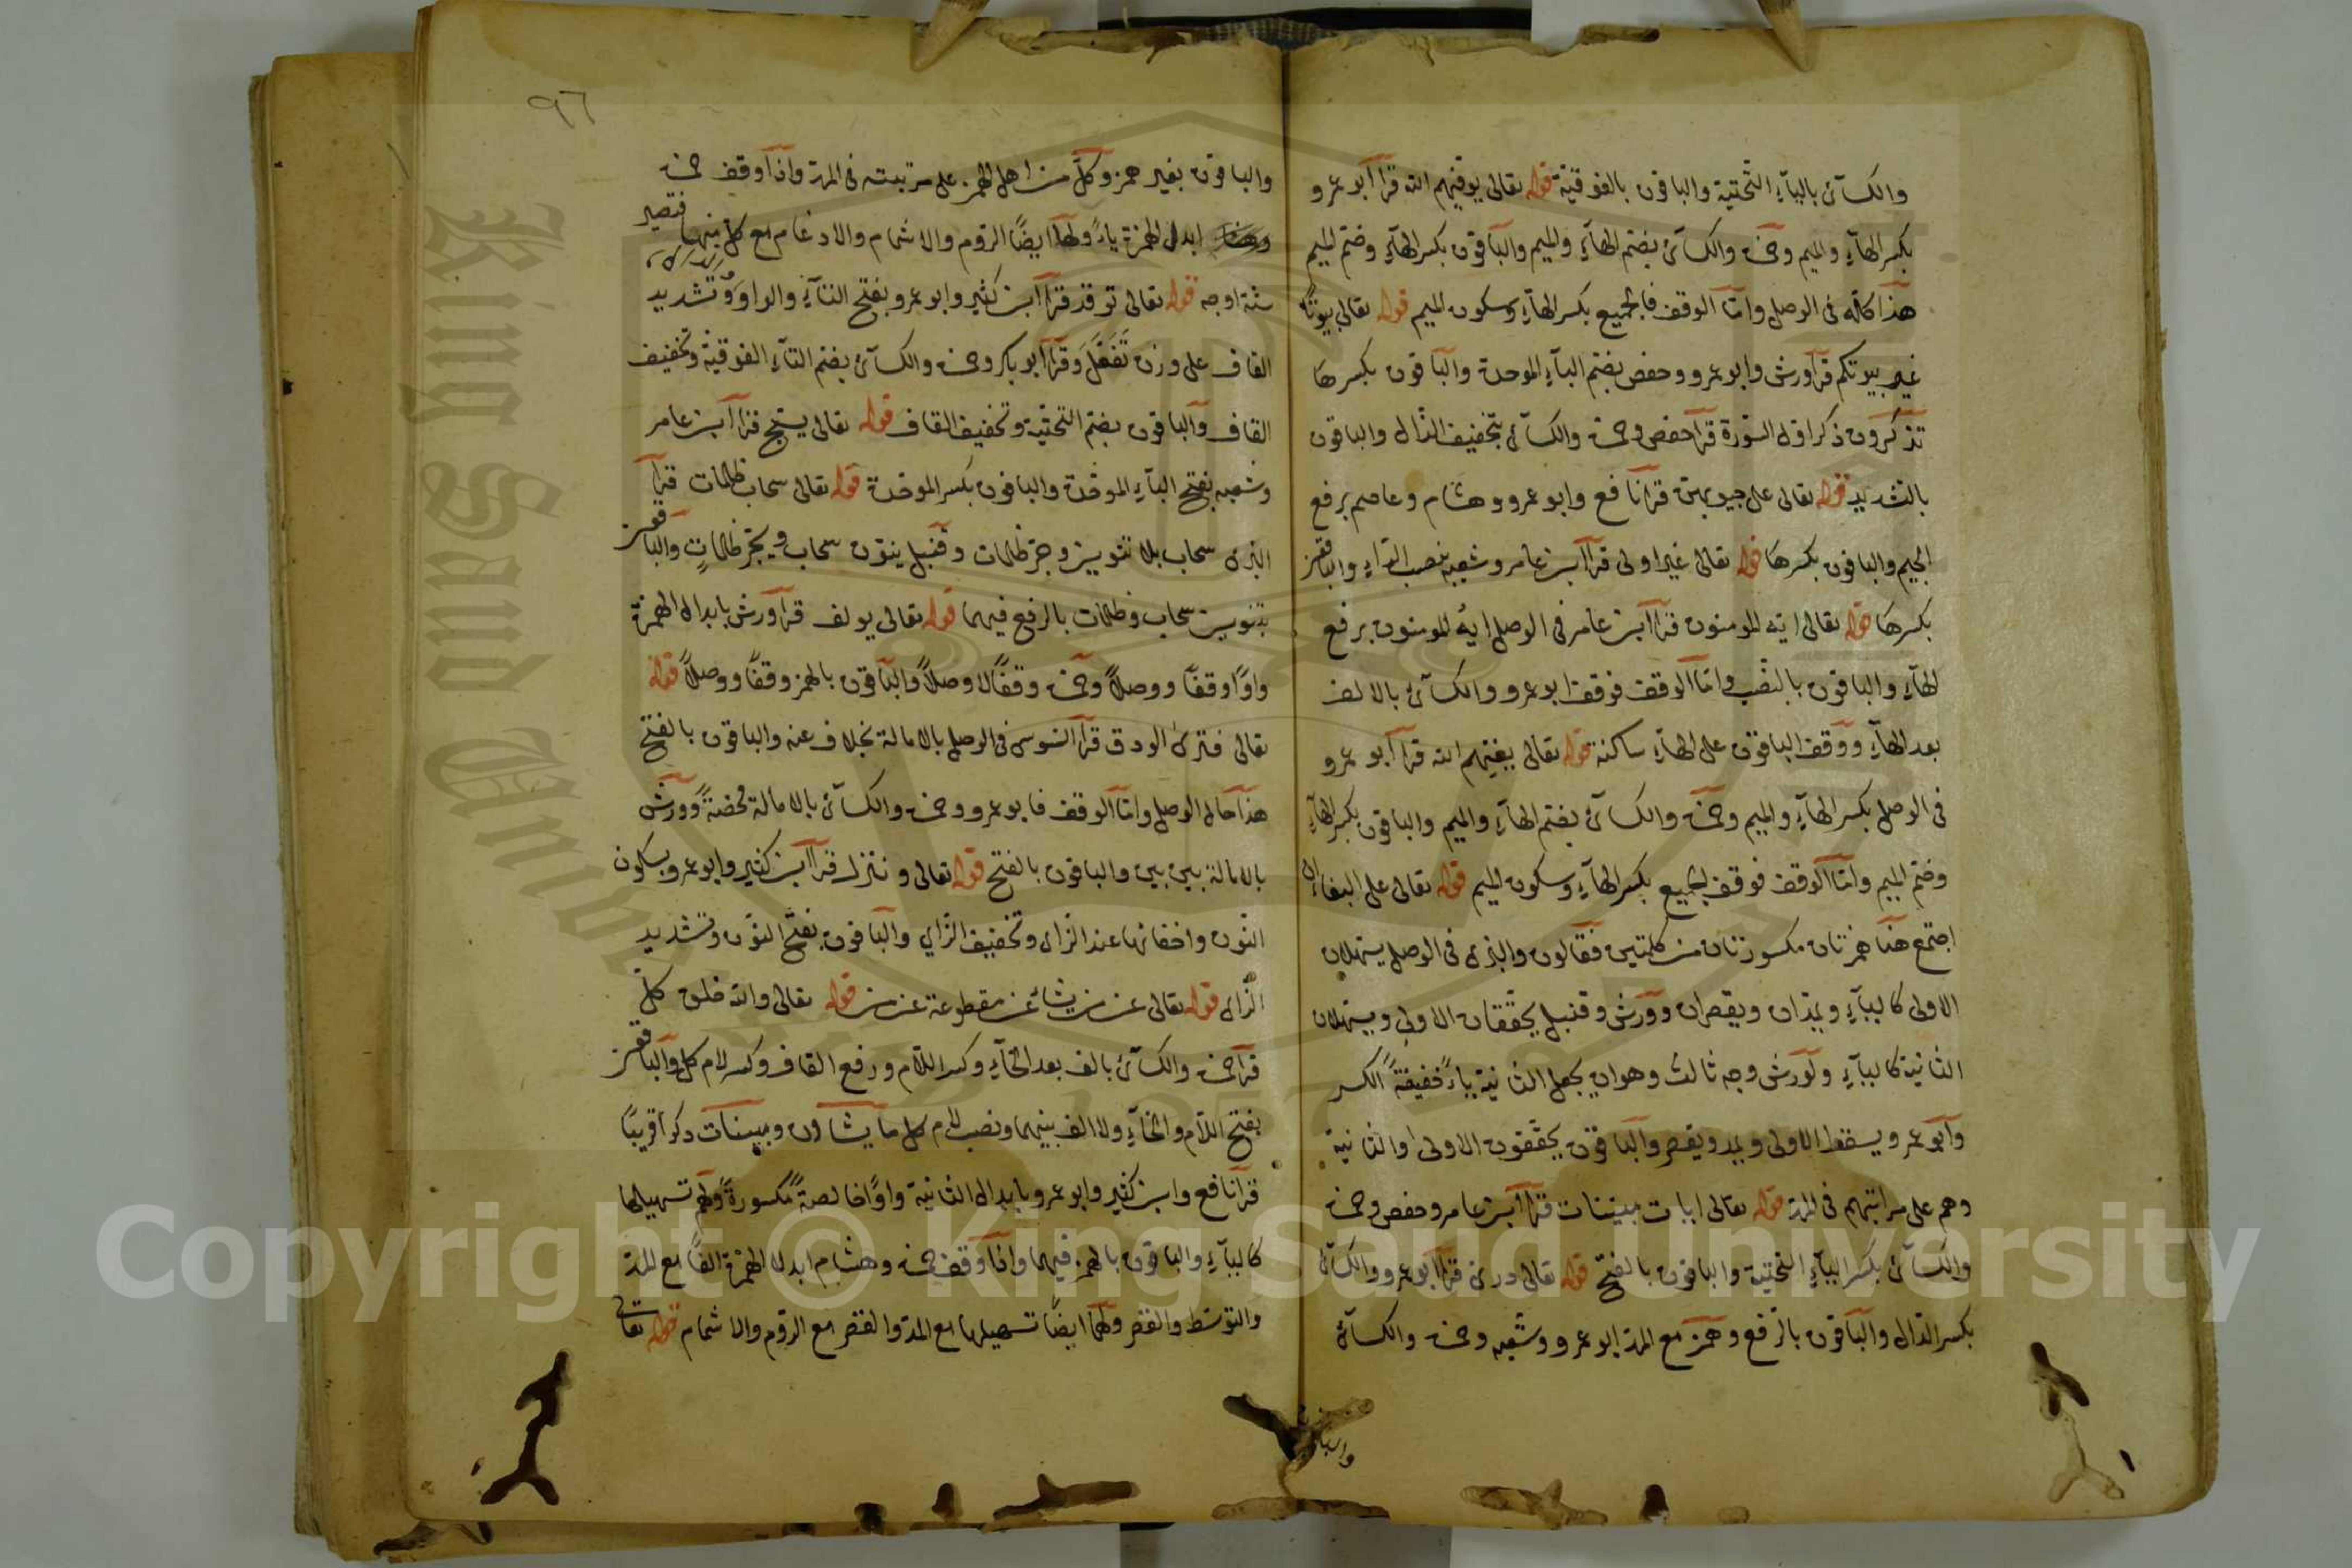 والكسآئ بالياۤء التحتية والباقون بالفوقية قوله تعالى يوفيهم الله قرأ أبو عمرو
بكسر الهآءِ والميم وحمزة والكسآئ بضم الهآءِ والميم والباقون بكسر الهآءِ وضم الميم
هذا كله فى الوصل وامّا الوقف فالجميع بكسر الهآءِ وسكون الميم قوله تعالى بيوتًا
غير بيوتكم قرأ ورش وابو عمرو وحفص بضم البآءِ الموحدة والباقون بكسرها
تذكرون ذكر اول السورة قرأ حفص وحمزة والكسآئ بتخفيف الذال والباقون
بالتشديد قوله تعالى على جيوبهن قرأ نافع وابو عمرو وهشام وعاصم برفع
الجيم والباقون بكسرها قوله تعالى غير اولى قرأ ابن عامر وشعبه بنصب الرآءِ والباقون
بكسرها قوله تعالى ايه المومنون قرأ ابن عامر فى الوصل ايهُ المومنون برفع
الهآءِ والباقون بالنصب وامّا الوقف فوقف ابو عمرو والكسآئ بالالف
بعد الهآءِ ووقف الباقون على الهآءِ ساكنة قوله تعالى يغنيهم الله قرأ أبو عمرو
فى الوصل بكسر الهآءِ والميم وحمزة والكسآئ بضم الهآءِ والميم والباقون بكسر الهآءِ
وضم الميم وامّا الوقف فوقف الجميع بكسر الهآءِ وسكون الميم قوله تعالى على البغاء ان
اجتمع هنا همزتان مكسورتان من كلمتين فقالون والبزى فى الوصل يسهلان
الاولى كاليآءِ ويمدان ويقصران وورش وقنبل يحققان الاولى ويسهلان
الثانية كاليآءِ ولورش وجه ثالث وهو ان يجعل الثانية ياءً خفيفةً الكسر
وابو عمرو يسقط الاولى ويمد ويقصر والباقون يحققون الاولى والثانية
وهم على مراتبهم فى المدّ قوله تعالى ايات مبينات قرأ ابن عامر وحفص وحمزة
والكسآئ بكسر اليآءِ التحتية والباقون بالفتح قوله تعالى درى قرأ أبو عمرو والكسآئ
بكسر الدال والباقون بالرفع وهمز مع المد ابو عمرو وشعبه وحمزة والكسآئ
٩٦
والباقون بغير همز وكلّ من اهل الهمز على مرتبته فى المد واذا وقف حمزة
ابدل الهمزة ياءً ولها ايضًا الروم والاشمام والادغام مع كل منهما فتصير
ستة اوجه قوله تعالى توقد قرأ ابن كثير وابو عمرو بفتح التآءِ والواو وتشديد
القاف على وزن تَفَعَّلَ وقرأ أبو بكر وحمزة والكسآئ بضم التآءِ الفوقية وتخفيف
القاف والباقون بضم التحتية وتخفيف القاف قوله تعالى يسبح قرأ ابن عامر
وشعبه بفتح البآءِ الموحدة والباقون بكسر الموحدة قوله تعالى سحاب ظلمات قرأ
البزى سحاب بلا تنوين وجر ظلمات وقنبل ينون سحاب ويجر ظلماتٍ والباقون
بتنوين سحاب وظلمات بالرفع فيهما قوله تعالى يولف قرأ ورش بابدال الهمزة
واوًا وقفًا ووصلاً وحمزة وقفًا لا وصلاً والباقون بالهمز وقفًا ووصلاً قوله
تعالى فترى الودق قرأ السوسى فى الوصل بالامالة بخلاف عنه والباقون بالفتح
هذا حال الوصل وامّا الوقف فابو عمرو وحمزة والكسآئ بالامالة محضةً وورش
بالامالة بين بين والباقون بالفتح قوله تعالى وننزل قرأ ابن كثير وابو عمرو بسكون
النون واخفائها عند الزاى وتخفيف الزاي والباقون بفتح النون وتشديد
الزاى قوله تعالى عن من يشآء عن مقطوعة عن من قوله تعالى والله خلق كلّ
قرأ حمزة والكسآئ بالف بعد الخآءِ وكسر اللام ورفع القاف وكسر لام كل والباقون
بفتح اللام والخآءِ ولا الف بينهما ونصب لام كل ما يشاؤن ومبينات ذكر قريبًا
قرأ نافع وابن كثير وابو عمرو بابدال الثانية واوًا خالصةً مكسورةً ولهم تسهيلها
كاليآءِ والباقون بالهمز فيهما واذا وقف حمزة وهشام ابدلا الهمزة الفًا مع المدّ
والتوسط والقصر ولهما ايضًا تسهيلها مع المد والقصر مع الروم والاشمام قوله تعالى
Copyright © King Saud University